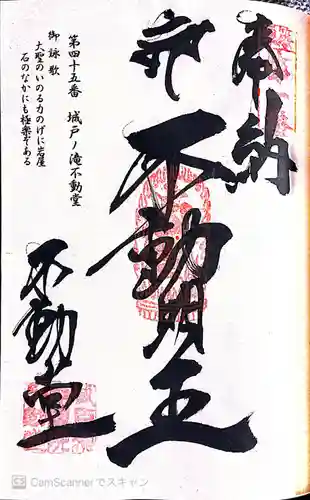 奉納
不動明王
第四十五番 城戸ノ滝不動堂
御詠歌
大聖のいのる力のげに岩屋
石のなかにも極楽ぞある
不動堂
CamScannerでスキャン